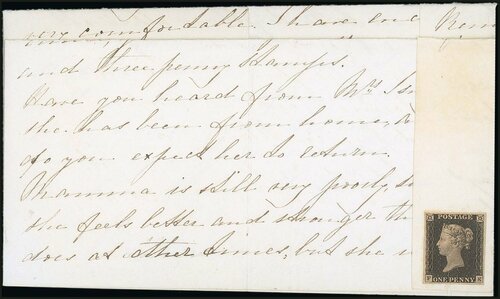 very comfortable. I have enc
Rem
and three penny stamps.
Have you heard from Mrs
she has been from home,
do you expect her to return.
Mamma is still very poorly, so
she feels better and stronger th
does at other times, but she
POSTAGE
ONE PENNY